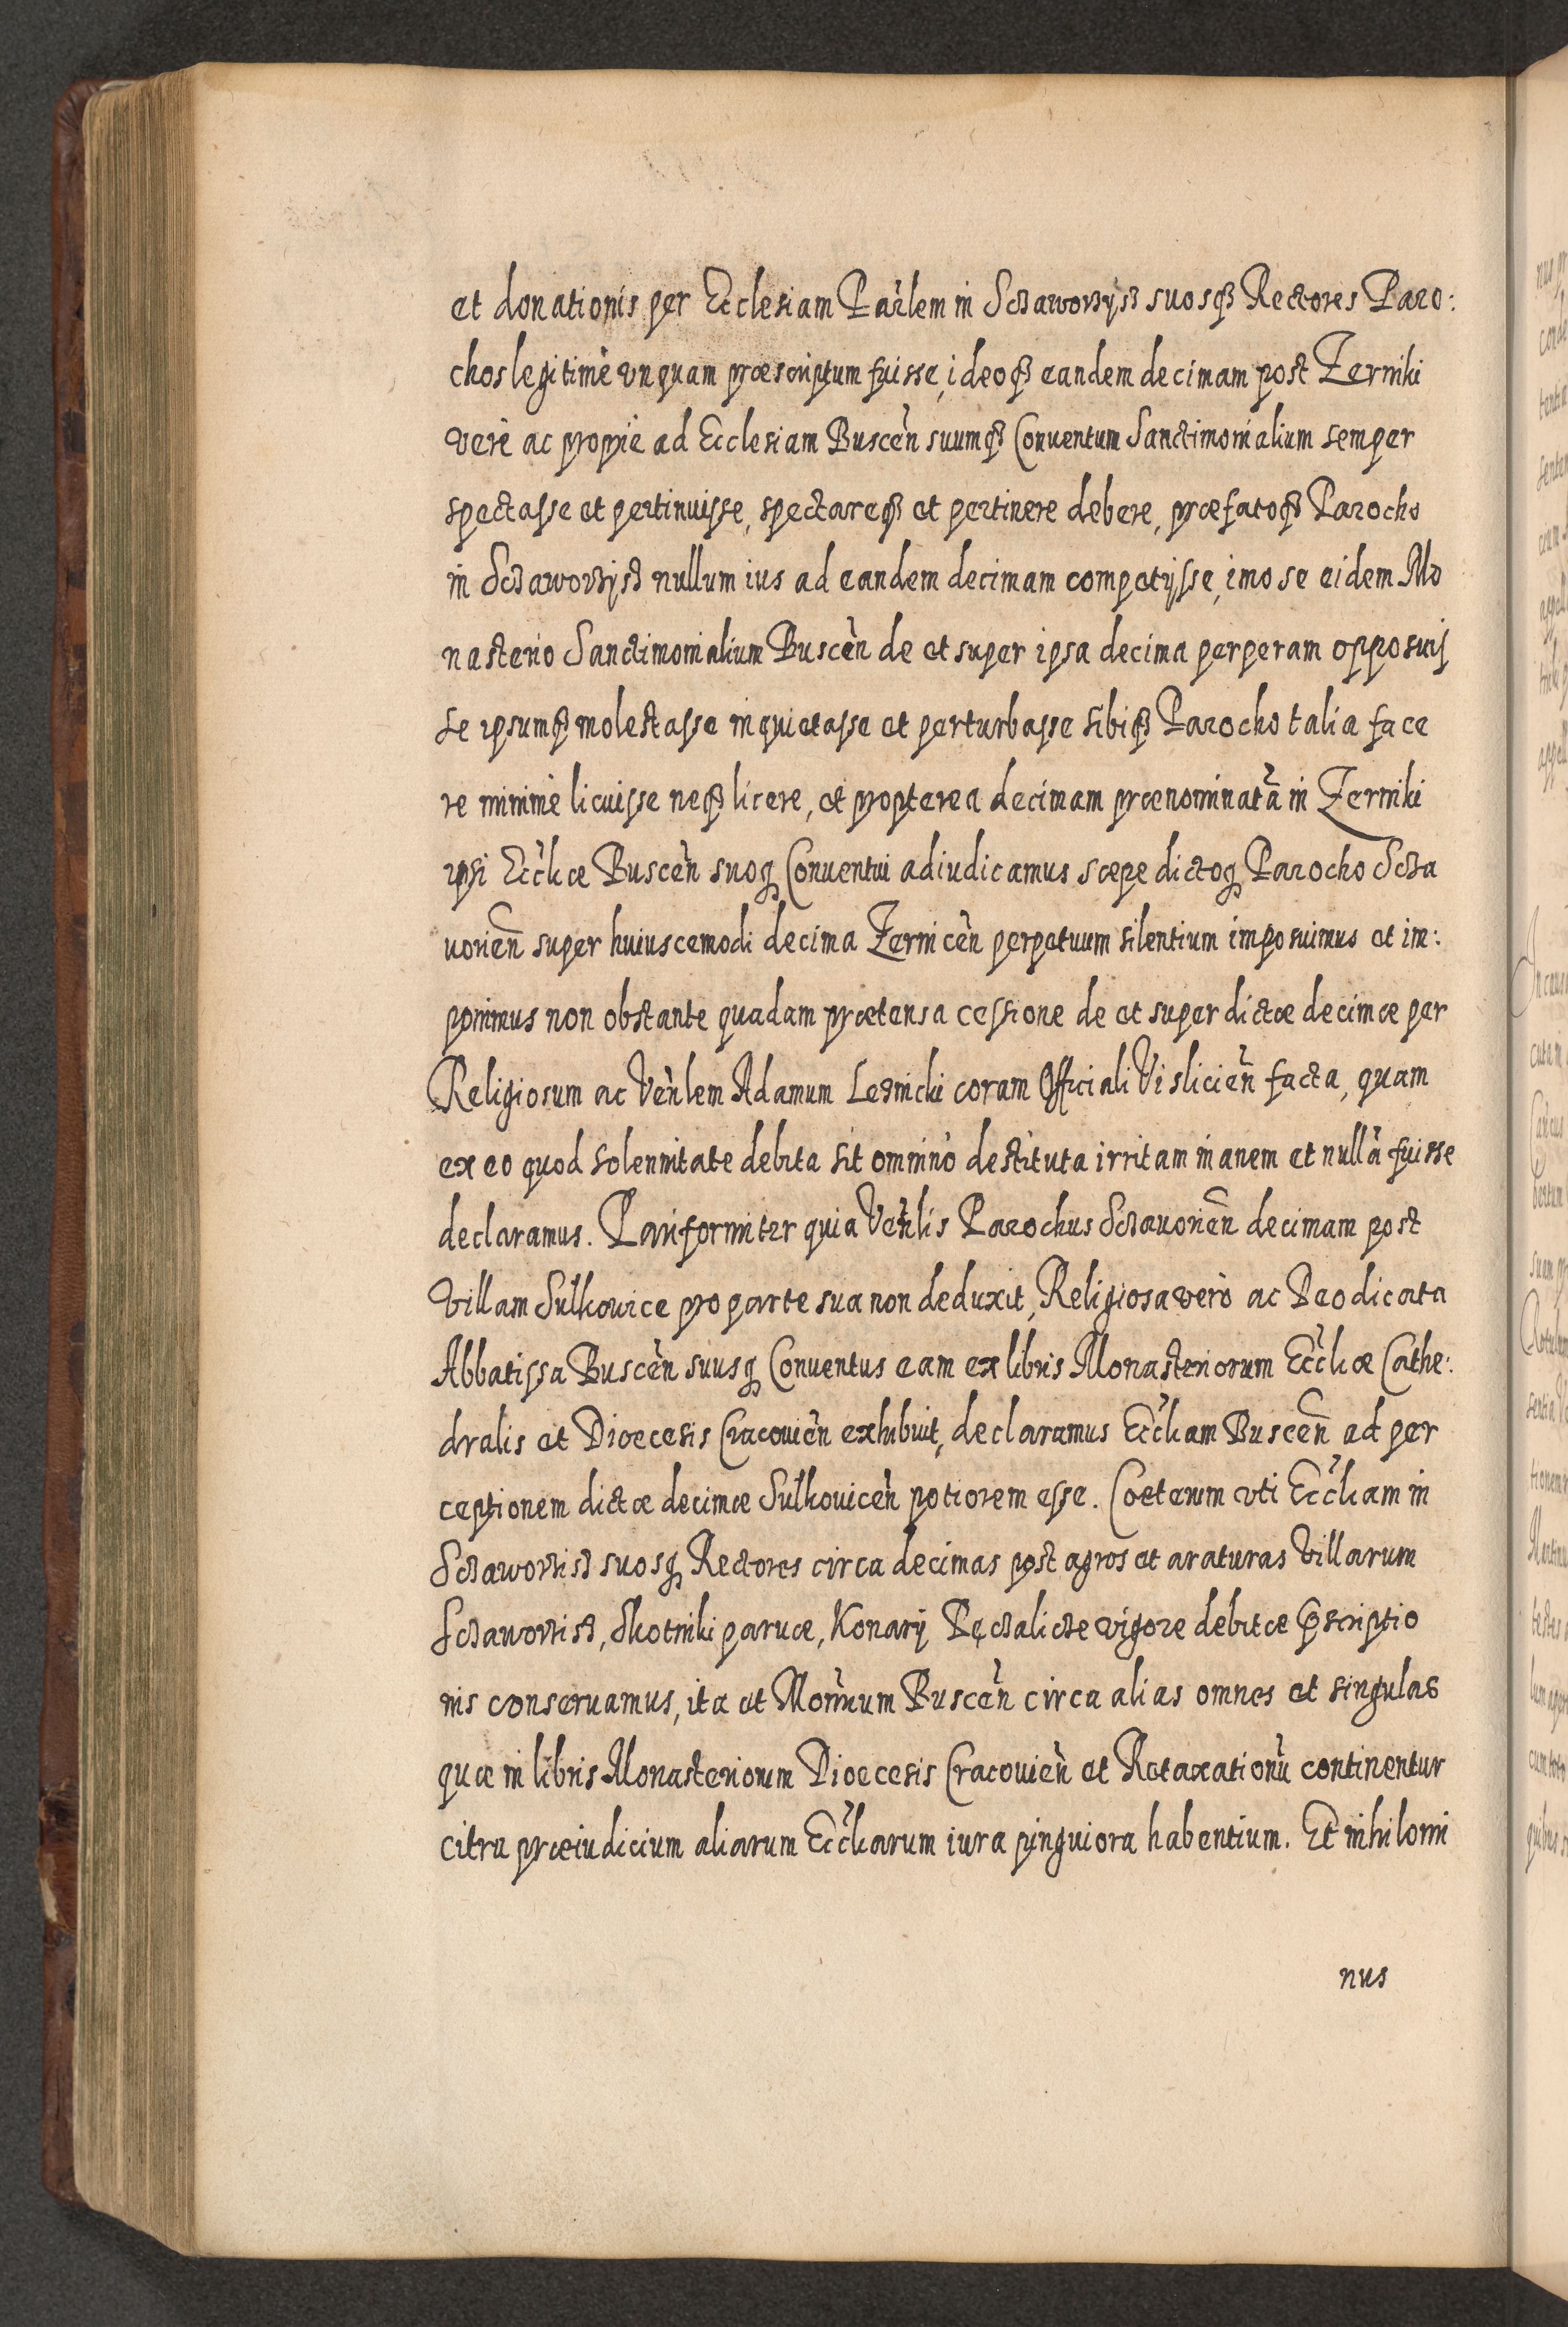 et donationis per Ecclesiam Parlem in Sczaworyż suosqȝ Rectores Paro:
chos legitimè vnquam præscriptum fuisse, ideoqȝ eandem decimam post Zerniki
verè ac propriè ad Ecclesiam Buscen̄ suumqȝ Conuentum Sanctimonialium semper
spectasse et pertinuisse, spectareqȝ et pertinere debere, præfatoqȝ Parocho
in nullum ius ad eandem decimam competijsse, imo se eidem Mo
nasterio Sanctimonialium Buscen̄ de et super ipsa decima perperam opposuis
se ipsumqȝ molestasse inquietasse et perturbasse sibiqȝ Parocho talia face
re minimè licuisse neqȝ licere, et propterea decimam prænominatã in Zerniki
ipsi Eccl̃iæ Buscen̄ suoqȝ Conuentui adiudicamus sæpe dictoqȝ Parocho Scza
uorien̄ super huiuscemodi decima Zernicen̄ perpetuum silentium imposuimus et im:
ponimus non obstante quadam prætensa cessione de et super dictæ decimæ per
Religiosum ac Ven̄lem Adamum coram Officiali Vislicien̄ facta, quam
ex eo quod solennitate debita sit omninò destituta irritam inanem et nullã fuisse
declaramus. Pariformiter quia Ven̄lis Parochus Sczauorien̄ decimam post
Villam Sulkowice pro parte sua non deduxit, Religiosa verò ac Deo dicata
Abbatissa Buscen̄ suusqȝ Conuentus eam ex libris Monasteriorum Eccl̃iæ Cathe:
dralis et Diœcesis Cracouien̄ exhibuit, declaramus Eccl̃iam Buscen̄ ad per
ceptionem dictæ decimæ Sulkouicen̄ potiorem esse. Cœterum vti Eccl̃iam in
suosqȝ Rectores circa decimas post agros et araturas Villarum
Skotniki paruæ, Konarÿ vigore debitæ p̄scriptio
nis conseruamus, ita et Mon̄rium Buscen̄ circa alias omnes et singulas
quæ in libris Monasteriorum Diœcesis Cracouien̄ et Retaxationũ continentur
citra præiudicium aliarum Eccl̃iarum iura pinguiora habentium. Et nihilomi
nus